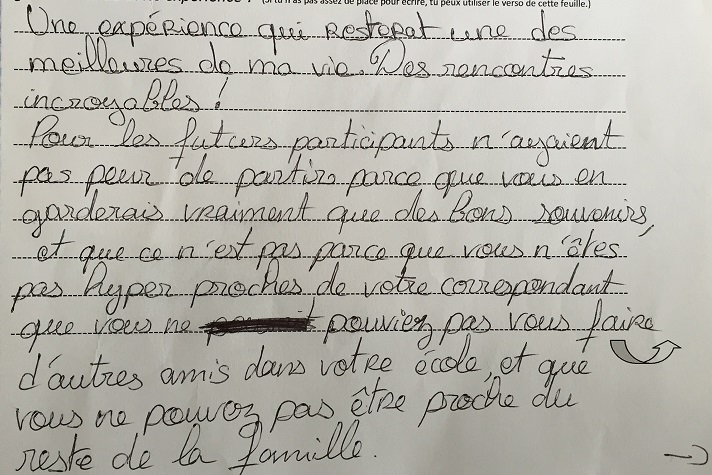 (Si tu n'as pas assez de place pour écrire, tu peux utiliser le verso de cette feuille.)
Une expérience qui resterat une des
meilleures de ma vie. Des rencontres
incroyables !
Pour les futurs participants n'ayaient
pas peur de partir parce que vous en
garderais vraiment que des bons souvenirs,
et que ce n'est pas parce que vous n'êtes
pas hyper proches de votre correspondant
que vous ne pouviez pas vous faire
d'autres amis dans votre école, et que
vous ne pouvez pas être proche du
reste de la famille.